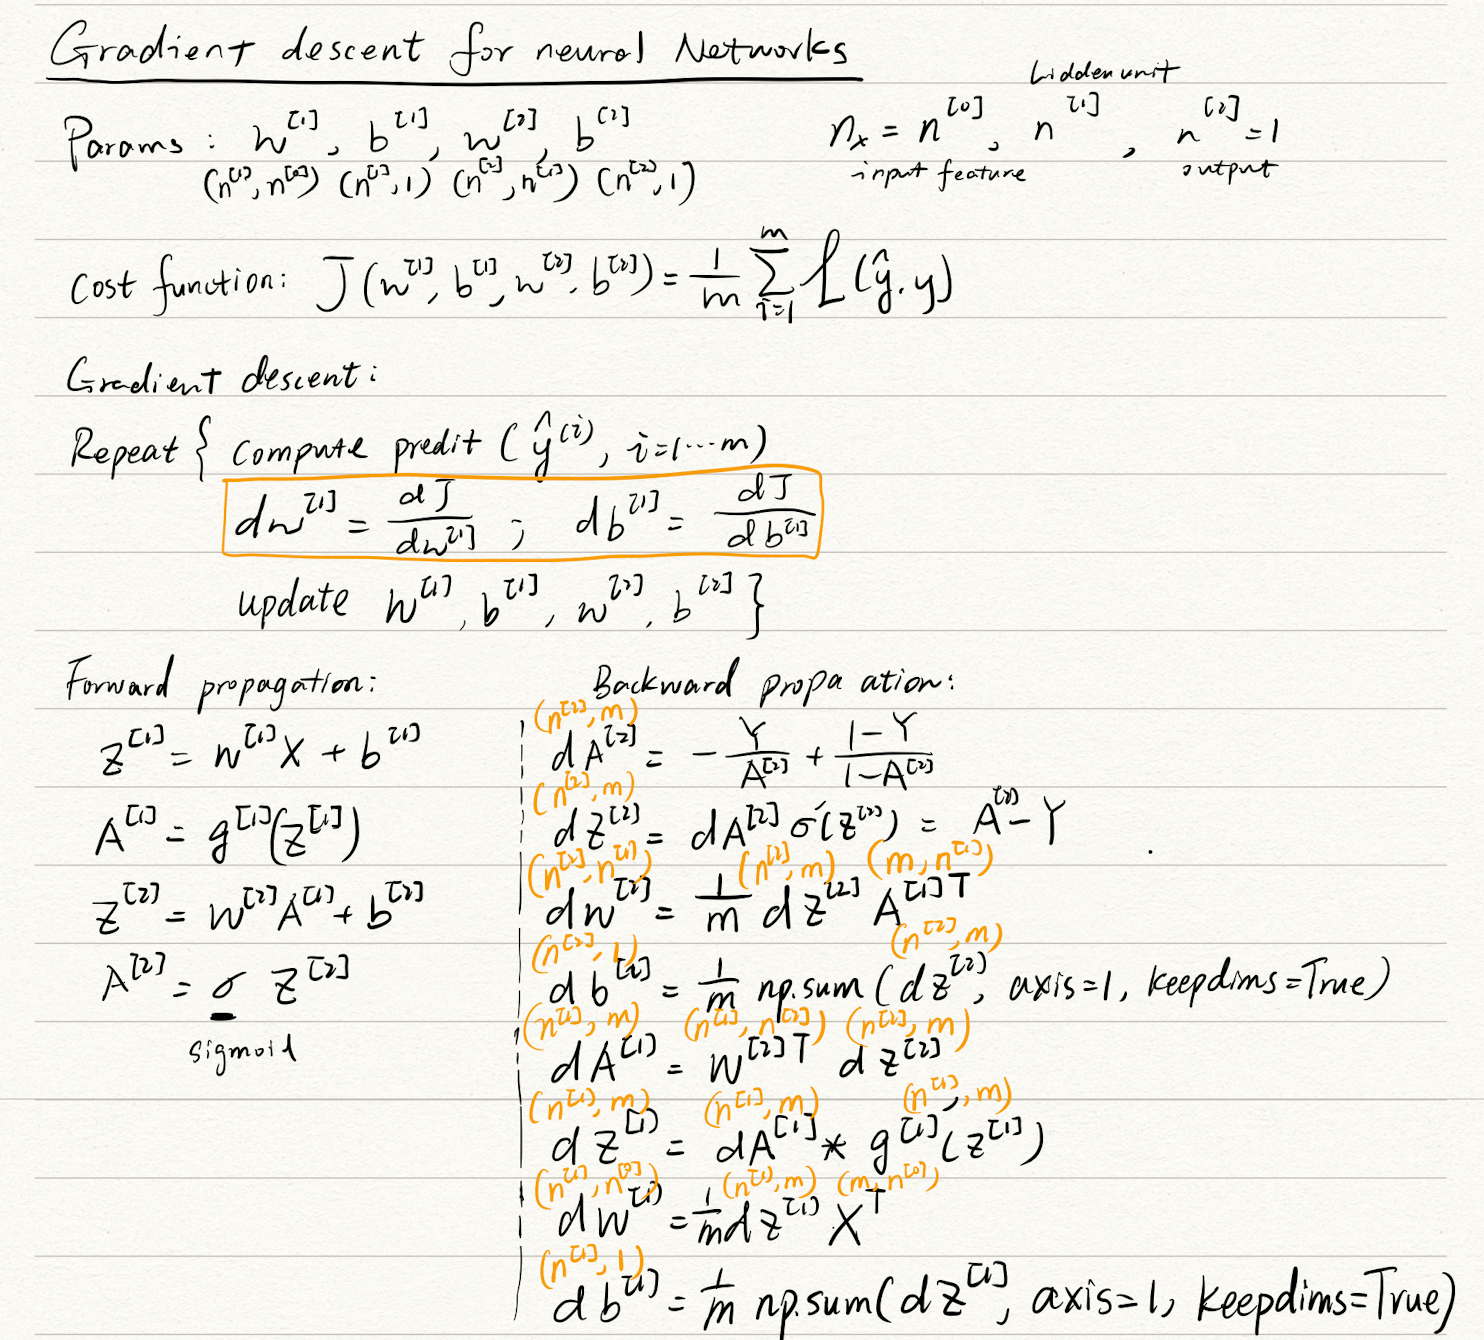 Gradient descent for neural Networks
hidden unit
Params : w^[1], b^[1], w^[2], b^[2]    n_x = n^[0], n^[1], n^[2] = 1
(n^[1], n^[0]) (n^[1], 1) (n^[2], n^[1]) (n^[2], 1)    input feature    output
Cost function: J(w^[1], b^[1], w^[2], b^[2]) = 1/m Σ_{i=1}^{m} L(ŷ, y)
Gradient descent:
Repeat { Compute predit (ŷ^(i), i=1...m)
dw^[1] = dJ/dw^[1] ; db^[1] = dJ/db^[1]
update w^[1], b^[1], w^[2], b^[2] }
Forward propagation:
z^[1] = w^[1]X + b^[1]
A^[1] = g^[1](z^[1])
z^[2] = w^[2]A^[1] + b^[2]
A^[2] = σ z^[2]
sigmoid
Backward propa ation:
(n^[2], m)
dA^[2] = - Y/A^[2] + 1-Y/1-A^[2]
(n^[2], m)
dz^[2] = dA^[2] σ'(z^[2]) = A^[2] - Y
(n^[2], n^[1]) (n^[2], m) (m, n^[1])
dw^[2] = 1/m dz^[2] A^[1]T
(n^[2], 1) (n^[2], m)
db^[2] = 1/m np.sum(dz^[2], axis=1, keepdims=True)
(n^[1], m) (n^[1], n^[2]) (n^[2], m)
dA^[1] = w^[2]T dz^[2]
(n^[1], m) (n^[1], m) (n^[1], m)
dz^[1] = dA^[1] * g^[1]'(z^[1])
(n^[1], n^[0]) (n^[1], m) (m, n^[0])
dw^[1] = 1/m dz^[1] X^T
(n^[1], 1)
db^[1] = 1/m np.sum(dz^[1], axis=1, keepdims=True)